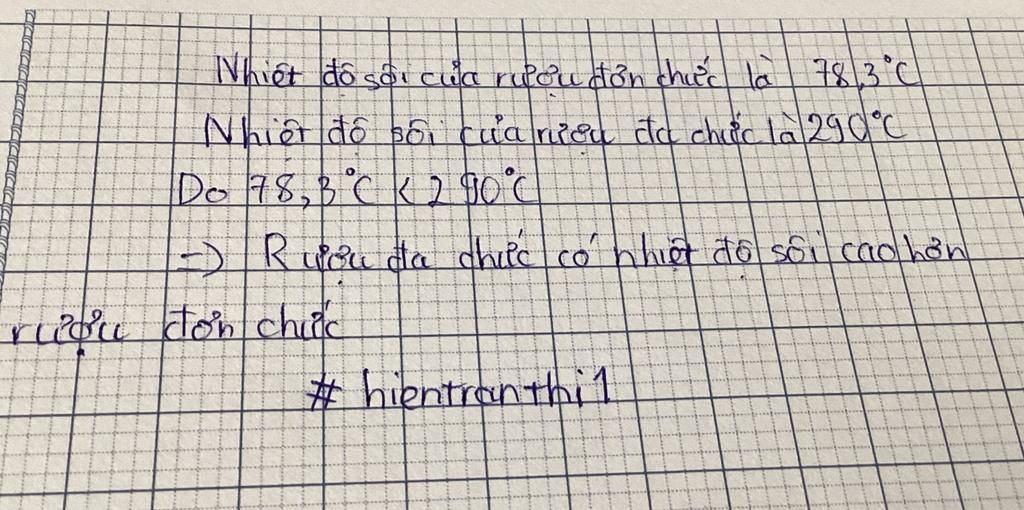 Nhiệt độ sôi của rượu đơn chức là 78,3°C
Nhiệt độ sôi của rượu đa chức là 290°C
Do 78,3°C < 290°C
=> Rượu đa chức có nhiệt độ sôi cao hơn
rượu đơn chức
# hientranthi1